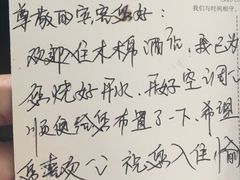 我们与时间相守。
尊敬的宾客您好：
欢迎住木棉酒店，我已为
您烧好开水、开好空调，
顺便给您布置了一下、希望
您喜欢 祝您入住愉